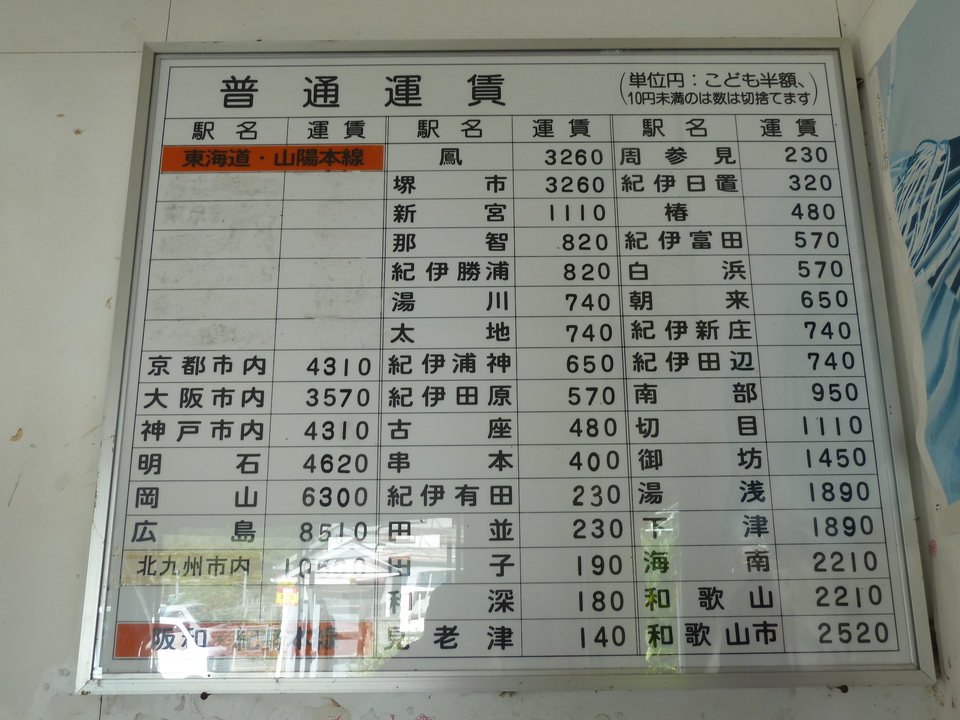 普通運賃
(単位円:こども半額、
10円未満のは数は切捨てます)
駅名 運賃 駅名 運賃 駅名 運賃
東海道・山陽本線 鳳 3260 周参見 230
堺市 3260 紀伊日置 320
新宮 1110 椿 480
那智 820 紀伊富田 570
紀伊勝浦 820 白浜 570
湯川 740 朝来 650
太地 740 紀伊新庄 740
京都市内 4310 紀伊浦神 650 紀伊田辺 740
大阪市内 3570 紀伊田原 570 南部 950
神戸市内 4310 古座 480 切目 1110
明石 4620 串本 400 御坊 1450
岡山 6300 紀伊有田 230 湯浅 1890
広島 8510 田並 230 下津 1890
北九州市内 田子 190 海南 2210
和深 180 和歌山 2210
阪和 紀勢本線 見老津 140 和歌山市 2520